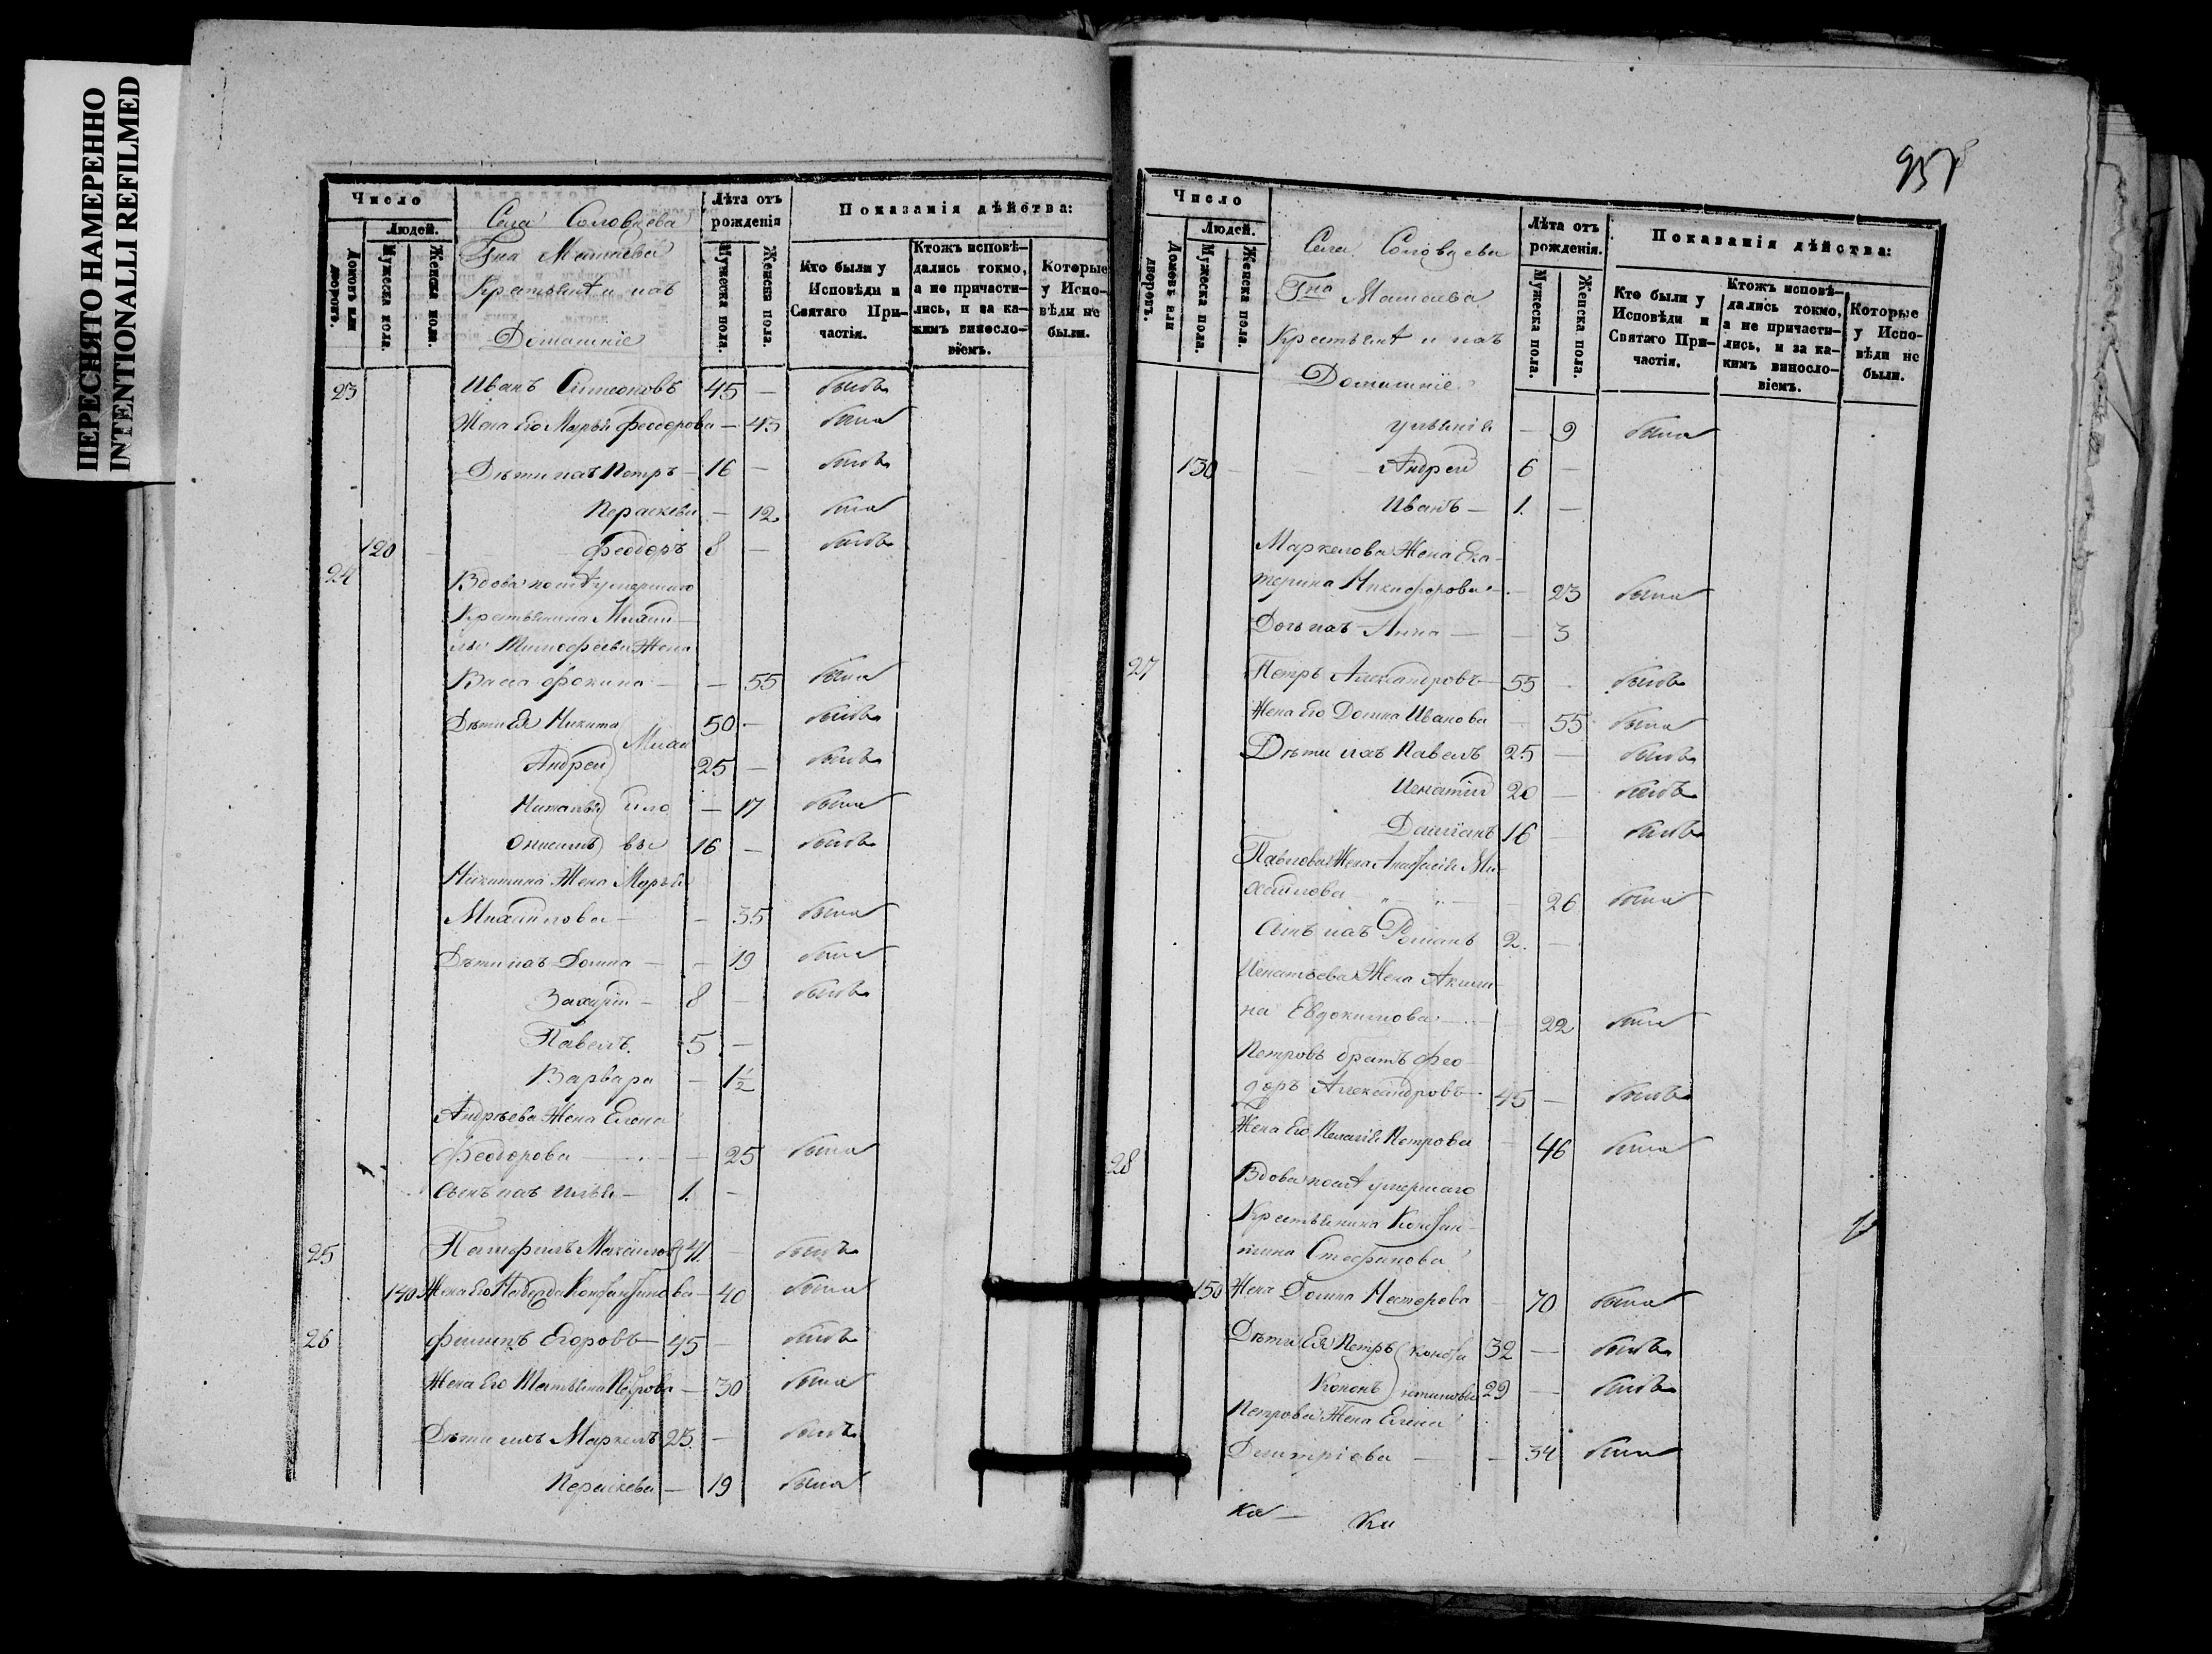 ПЕРЕСНЯТО НАМЕРЕННО
INTENTIONALLI REFILMED
Число
Людей.
Домовъ или дворовъ.
Мужеска пола.
Женска пола.
Села Соловцева
Гна Матаева
Крестьянѣ и ихъ
Домашніе
Лѣта отъ рожденія
Мужеска пола.
Женска пола.
Показанія дѣйства:
Кто были у Исповѣди и Святаго Причастія.
Ктожъ исповѣ-
дались токмо,
а не причасти-
лись, и за ка-
кимъ винсло-
віемъ.
Которые
у Испо-
вѣди не
были.
23 Иванъ Симеоновъ 45 — былъ
Жена его Марья Феодорова — 45 была
Дѣти ихъ Петръ — 16 — былъ
Параскева — 12 была
120 Феодоръ 8 — былъ
24 Вдова послѣ умершаго
Крестьянина Михаи-
ла Тимофеева Жена
Васса Фокина — — 55 была
Дѣти Ея Никита 50 — былъ
Андрей 25 — былъ
Михаиловы
Наталья — 17 была
Онисимъ 16 — былъ
Никитина Жена Марья
Михайлова — — 35 была
Дѣти ихъ Домна — — 19 была
Захарій — 8 — былъ
Павелъ 5 —
Варвара — 1½
Андреева Жена Елена
Феодорова — — 25 была
Сынъ ихъ Илья — 1. —
25 Памфилъ Михаиловъ 41 — былъ
140 Жена его Надежда Константинова — 40 была
26 Филипъ Егоровъ — 45 — былъ
Жена его Татьяна Петрова — 30 была
Дѣти ихъ Маркелъ 23. — былъ
Параскева — 19 была
Число
Людей.
Домовъ или дворовъ.
Мужеска пола.
Женска пола.
Села Соловцева
Гна Матаева
Крестьянѣ и ихъ
Домашніе
Лѣта отъ рожденія.
Мужеска пола.
Женска пола.
Показанія дѣйства:
Кто были у
Исповѣди и
Святаго При-
частія.
Ктожъ исповѣ-
дались токмо,
а не причасти-
лись, и за ка-
кимъ винсло-
віемъ.
Которые
у Испо-
вѣди не
были.
Ульянія — 9 была
130 — Андрей 6 —
Иванъ — 1. —
Маркелова Жена Ека-
терина Никифорова — 23 была
Дочь ихъ Анна — — 3
27 Петръ Александровъ — 55 — былъ
Жена его Домна Иванова — 55 была
Дѣти ихъ Павелъ 25 — былъ
Игнатій 20 — былъ
Даміанъ 16 — былъ
Павлова Жена Анастасія Ми-
хаилова — 26 была
Сынъ ихъ Романъ 2. —
Игнатьева Жена Акили-
на Евдокимова — 22 была
Петровъ братъ Фео-
доръ Александровъ — 45 — былъ
Жена его Пелагія Петрова — 46 была
28 Вдова послѣ умершаго
Крестьянина Констан-
тина Стефанова
150 Жена Домна Нестерова — 70 была
Дѣти Ея Петръ 32 — былъ
Константиновы
Кононъ 29 — былъ
Петрова Жена Елена
Дмитріева — — 34 была